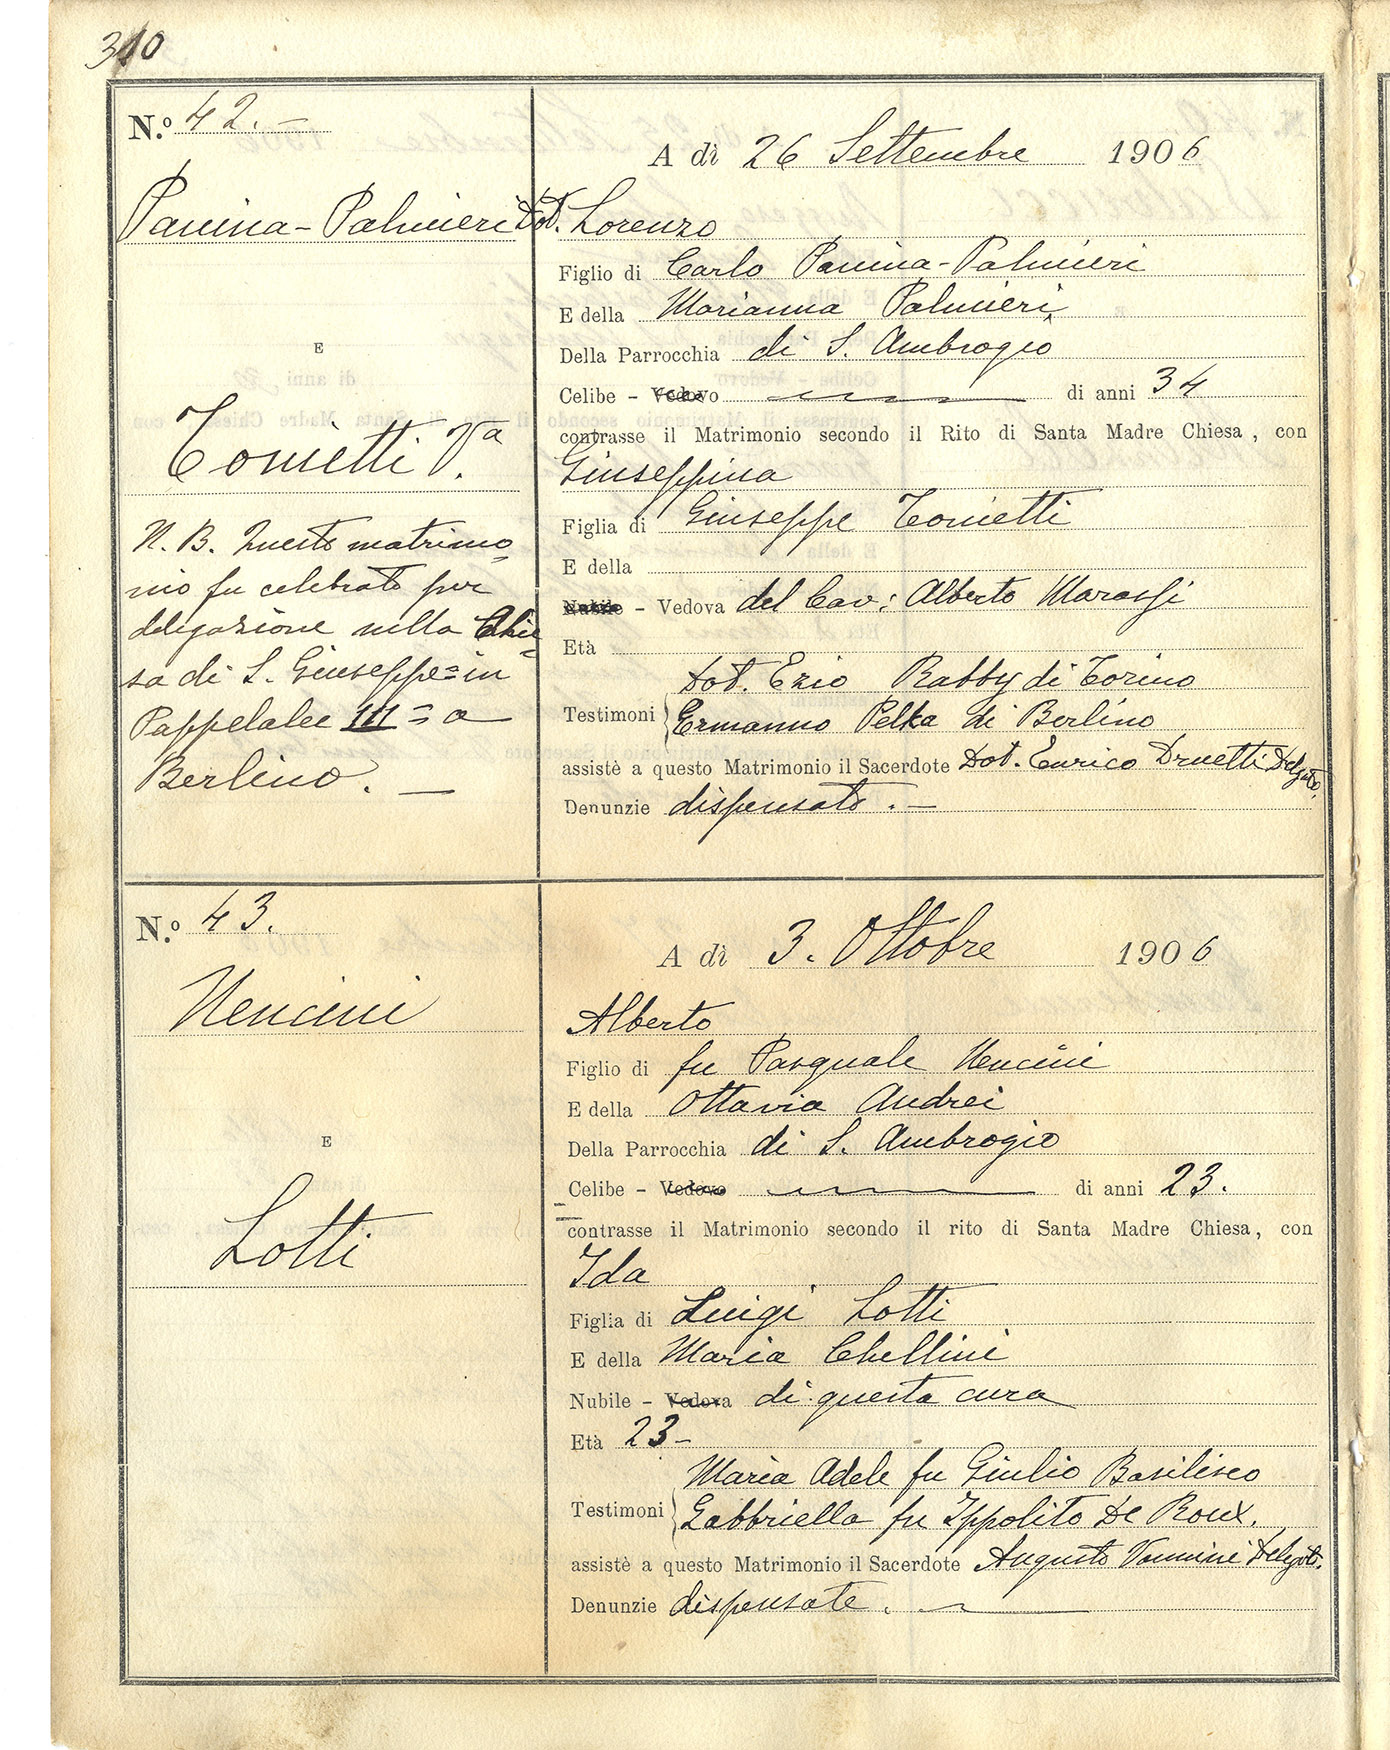 310
N.º 42. —
A dì 26 Settembre 1906
Panina-Palmieri Dot. Lorenzo
Figlio di Carlo Panina-Palmieri
E della Marianna Palmieri
Della Parrocchia di S. Ambrogio
Celibe - Vedovo di anni 34
E
contrasse il Matrimonio secondo il Rito di Santa Madre Chiesa, con
Tonietti Vª
Giuseppina
Figlia di Giuseppe Tonietti
E della
Nubile - Vedova del Cav: Alberto Marassi
Età
Testimoni Dot. Ezio Rabby di Torino
Ermanno Pelka di Berlino
assistè a questo Matrimonio il Sacerdote Dot. Enrico Druetti Delgato.
Denunzie dispensato. —
N. B. Questo matrimo=
nio fu celebrato per
delegazione nella Chie=
sa di S. Giuseppe=in
Pappelalee III = a
Berlino. —
N.º 43.
A dì 3. Ottobre 1906
Nencini
Alberto
Figlio di fu Pasquale Nencini
E della Ottavia Andrei
Della Parrocchia di S. Ambrogio
E
Celibe - Vedovo di anni 23.
contrasse il Matrimonio secondo il rito di Santa Madre Chiesa, con
Lotti
Ida
Figlia di Luigi Lotti
E della Maria Chellini
Nubile - Vedova di questa cura
Età 23-
Testimoni Maria Adele fu Giulio Basilisco
Gabbriella fu Ippolito De Roux.
assistè a questo Matrimonio il Sacerdote Augusto Vannini Delegato.
Denunzie dispensate.